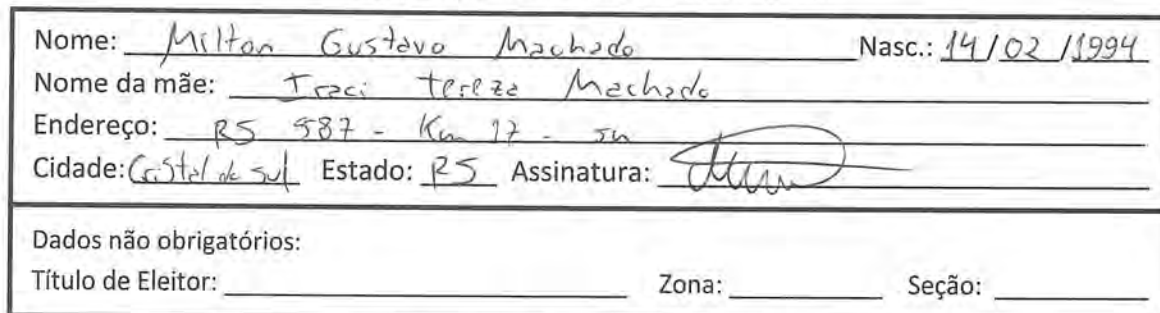 Nome: Milton Gustavo Machado Nasc.: 14/02/1994
Nome da mãe: Iraci tereza Machado
Endereço: RS 587 - Km 17 - sn
Cidade: Cristal do sul Estado: RS Assinatura:
Dados não obrigatórios:
Título de Eleitor: Zona: Seção: